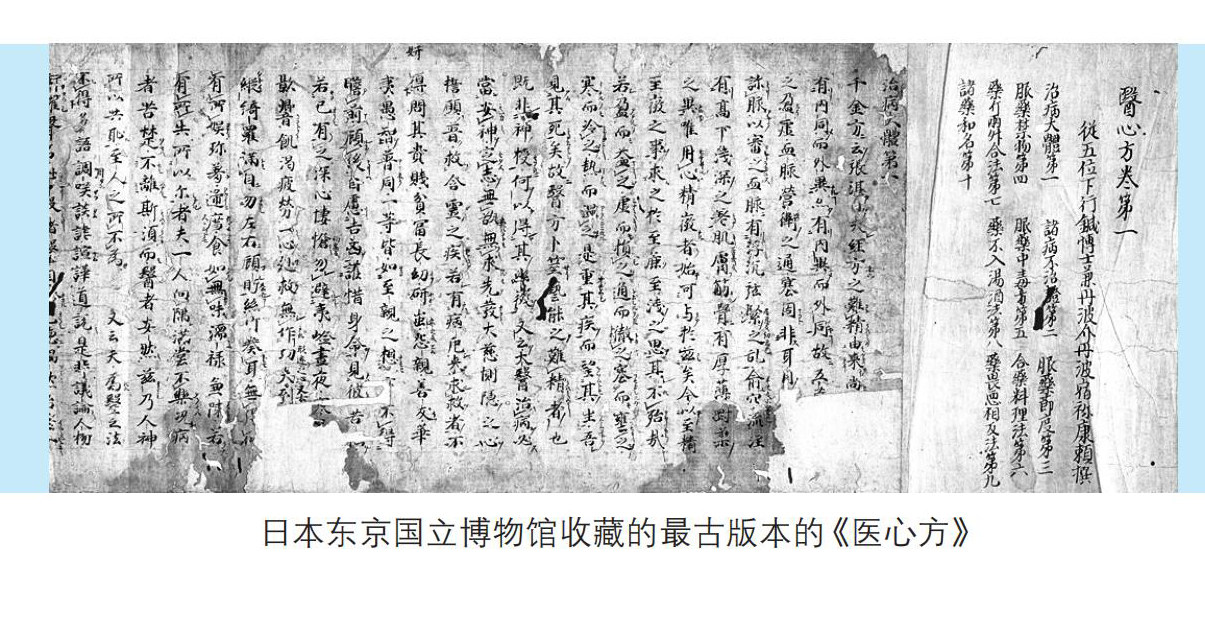 醫心方卷第一
從五位下行鍼博士兼丹波介丹波宿祢康頼撰
治病大體第一 諸病不治證第二 服藥節度第三
服藥禁物第四 服藥中毒方第五 合藥料理法第六
藥斤兩升合法第七 藥不入湯酒法第八 藥畏惡相反法第九
諸藥和名第十
治病大體第一
千金方云張湛曰夫經方之難精由來尚
有內同而外異亦有內異而外同故五
之盈虛血脉營衛之通塞固非耳目
診脉以審之而脉有浮沉弦緊之乱俞穴流注
有高下淺深之差肌膚筋骨有厚薄剛柔
之異唯用心精微者始可与於兹矣今以至精
至微之事求之於至麁至淺之思其不殆哉
若盈而益之虛而損之通而徹之塞而壅之
寒而冷之熱而温之是重其疾而望其生吾
見其死矣故醫方卜筮藝能之難精者也
既非神授何以得其幽微 又云大醫治病必
當安神定志無欲無求先發大慈惻隱之心
誓願普救含靈之疾若有病厄來求救者不
妍
得問其貴賤貧冨長幼研蚩怨親善友華
夷愚智普同一等皆如至親之想 不得
瞻前顧後自慮吉凶護惜身命見彼苦
若己有之深心悽愴勿避 晝夜寒
飢渴疲勞一心赴救無作功夫
綺羅滿目勿左右顧眄絲竹湊耳無
有所娯珍羞迭薦食如無味醽醁兼陳
有所以尔者夫一人向隅滿堂不樂况病
者苦楚不離斯須而醫者安然 兹乃人神
所以共耻至人之所不為 又云夫為醫之法
不得多語調咲談謔諠譁道説是非議論人物
日本东京国立博物馆收藏的最古版本的《医心方》